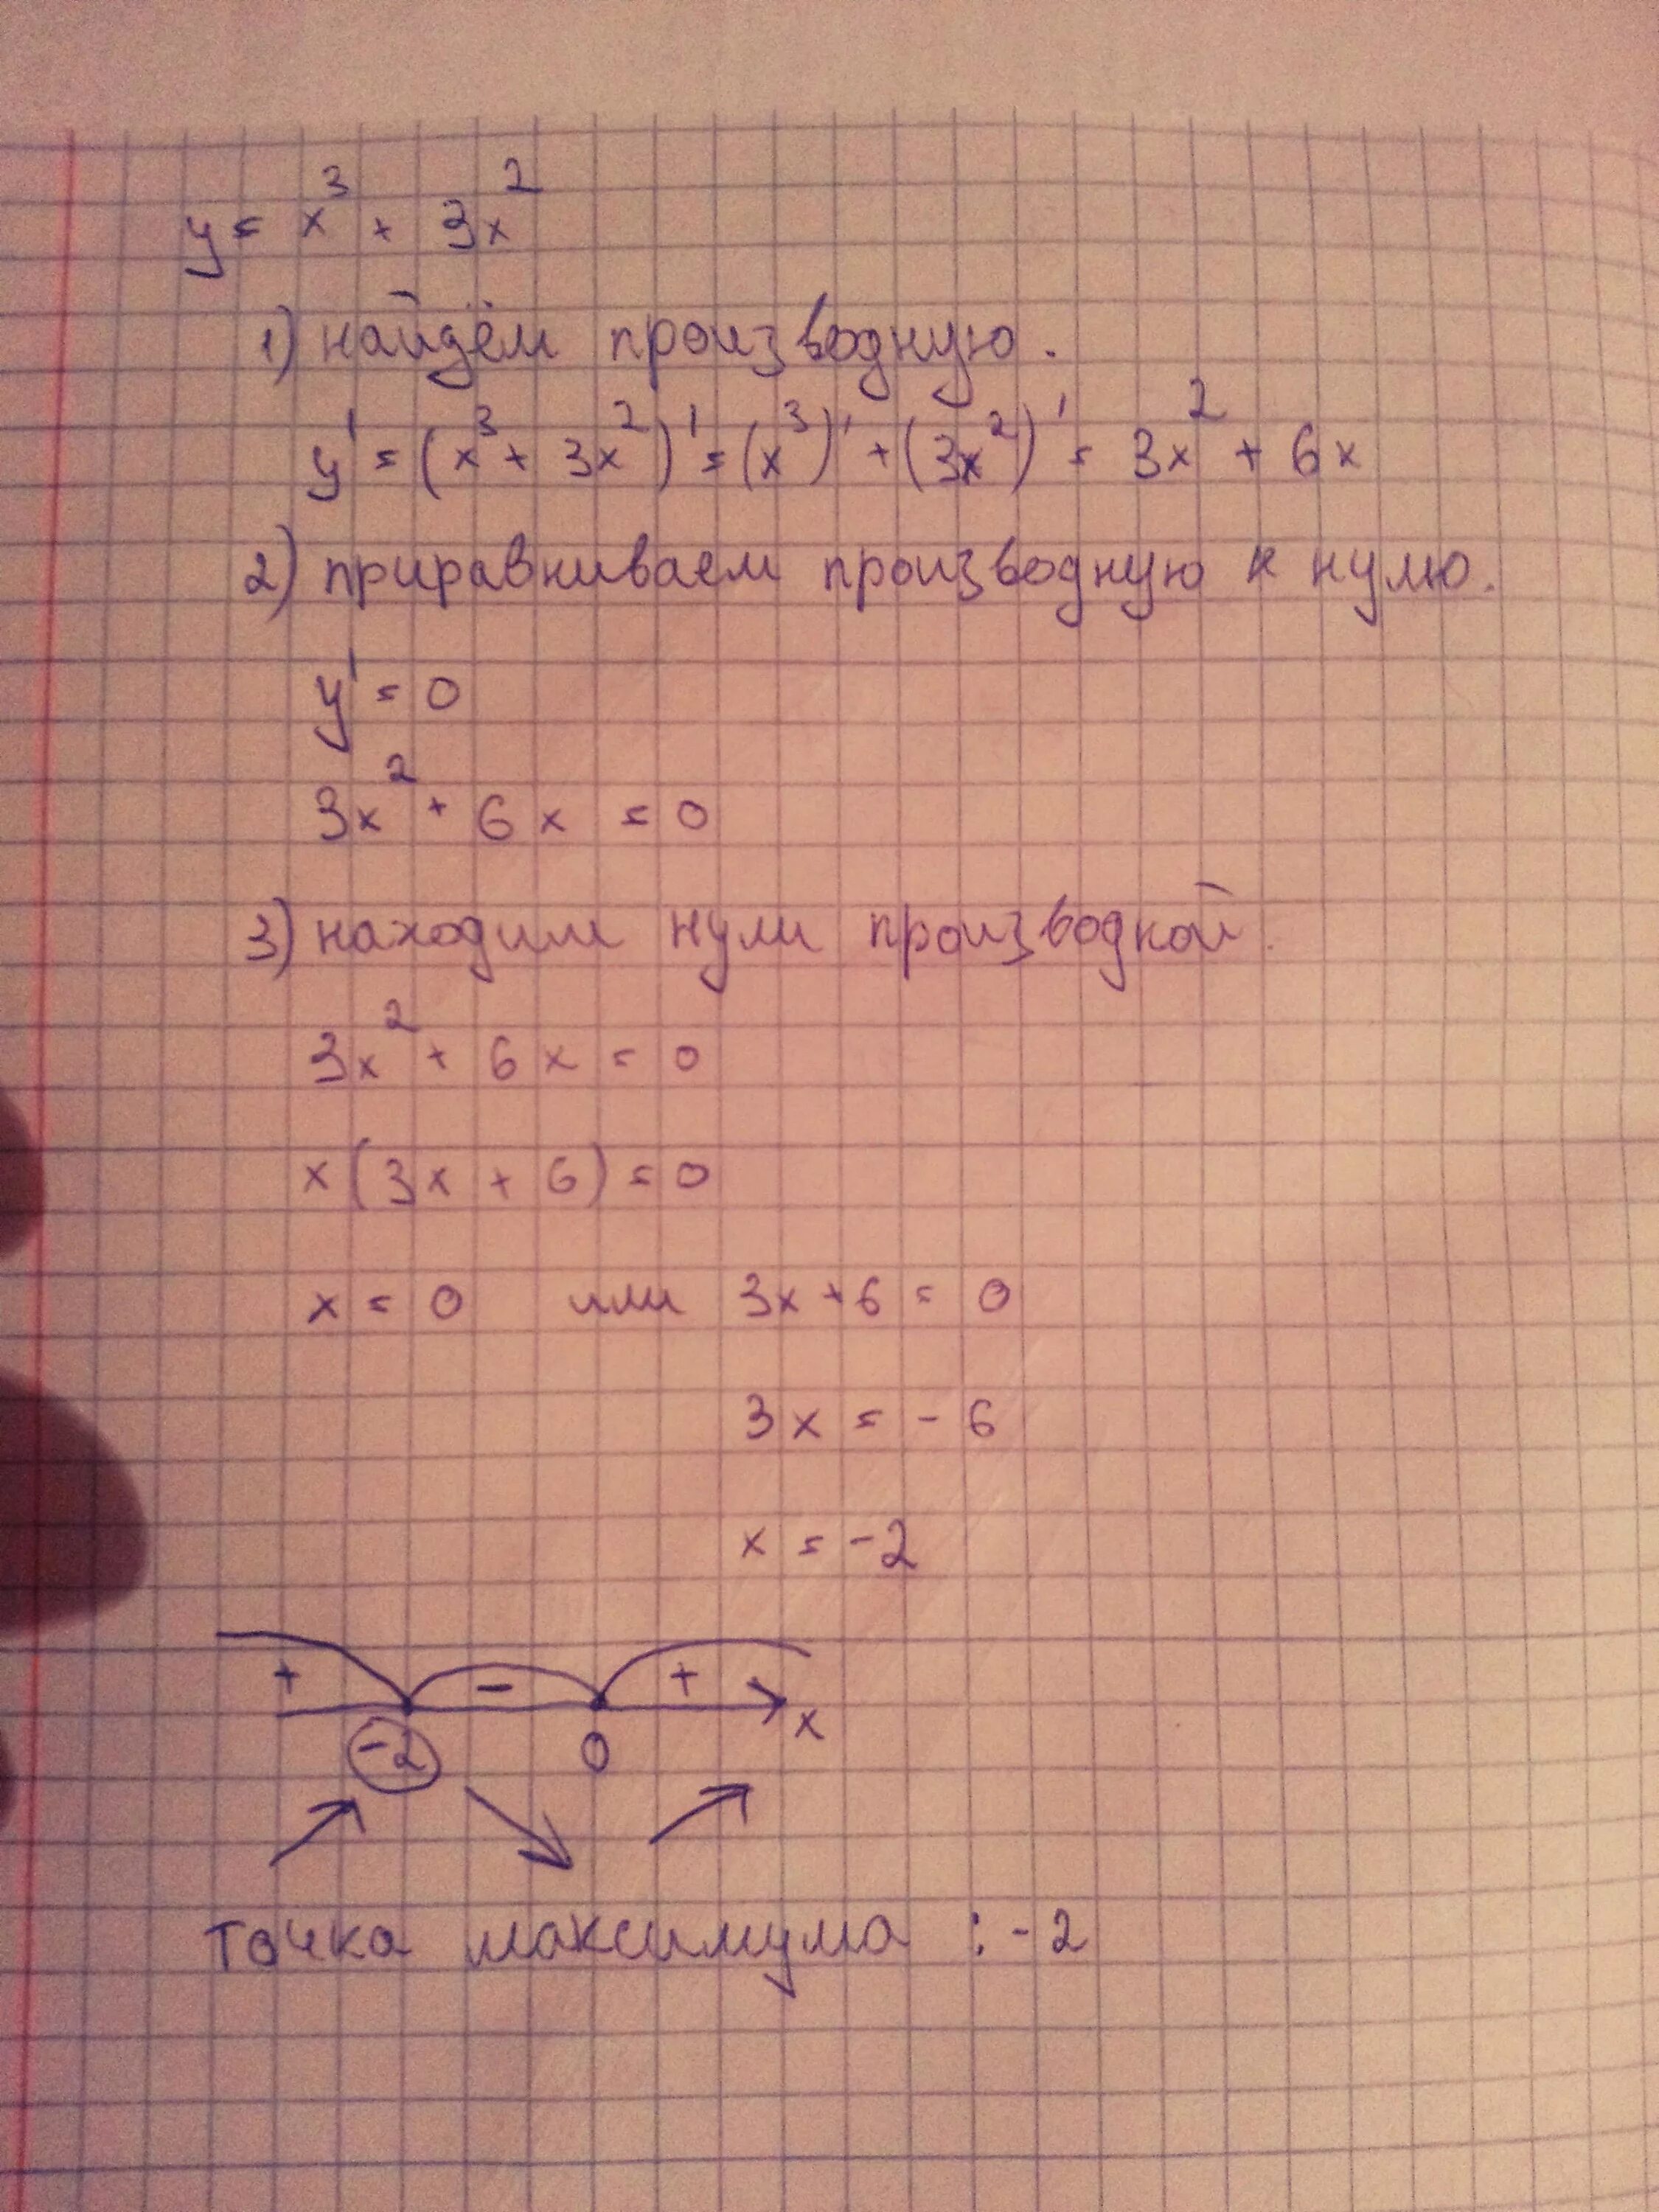 y = x³ + 3x²
1) найдём производную.
y' = (x³ + 3x²)' = (x³)' + (3x²)' = 3x² + 6x
2) приравниваем производную к нулю.
y' = 0
3x² + 6x = 0
3) находим нули производной.
3x² + 6x = 0
x(3x + 6) = 0
x = 0 или 3x + 6 = 0
3x = -6
x = -2
+ - +
-2 0 x
точка максимума : -2